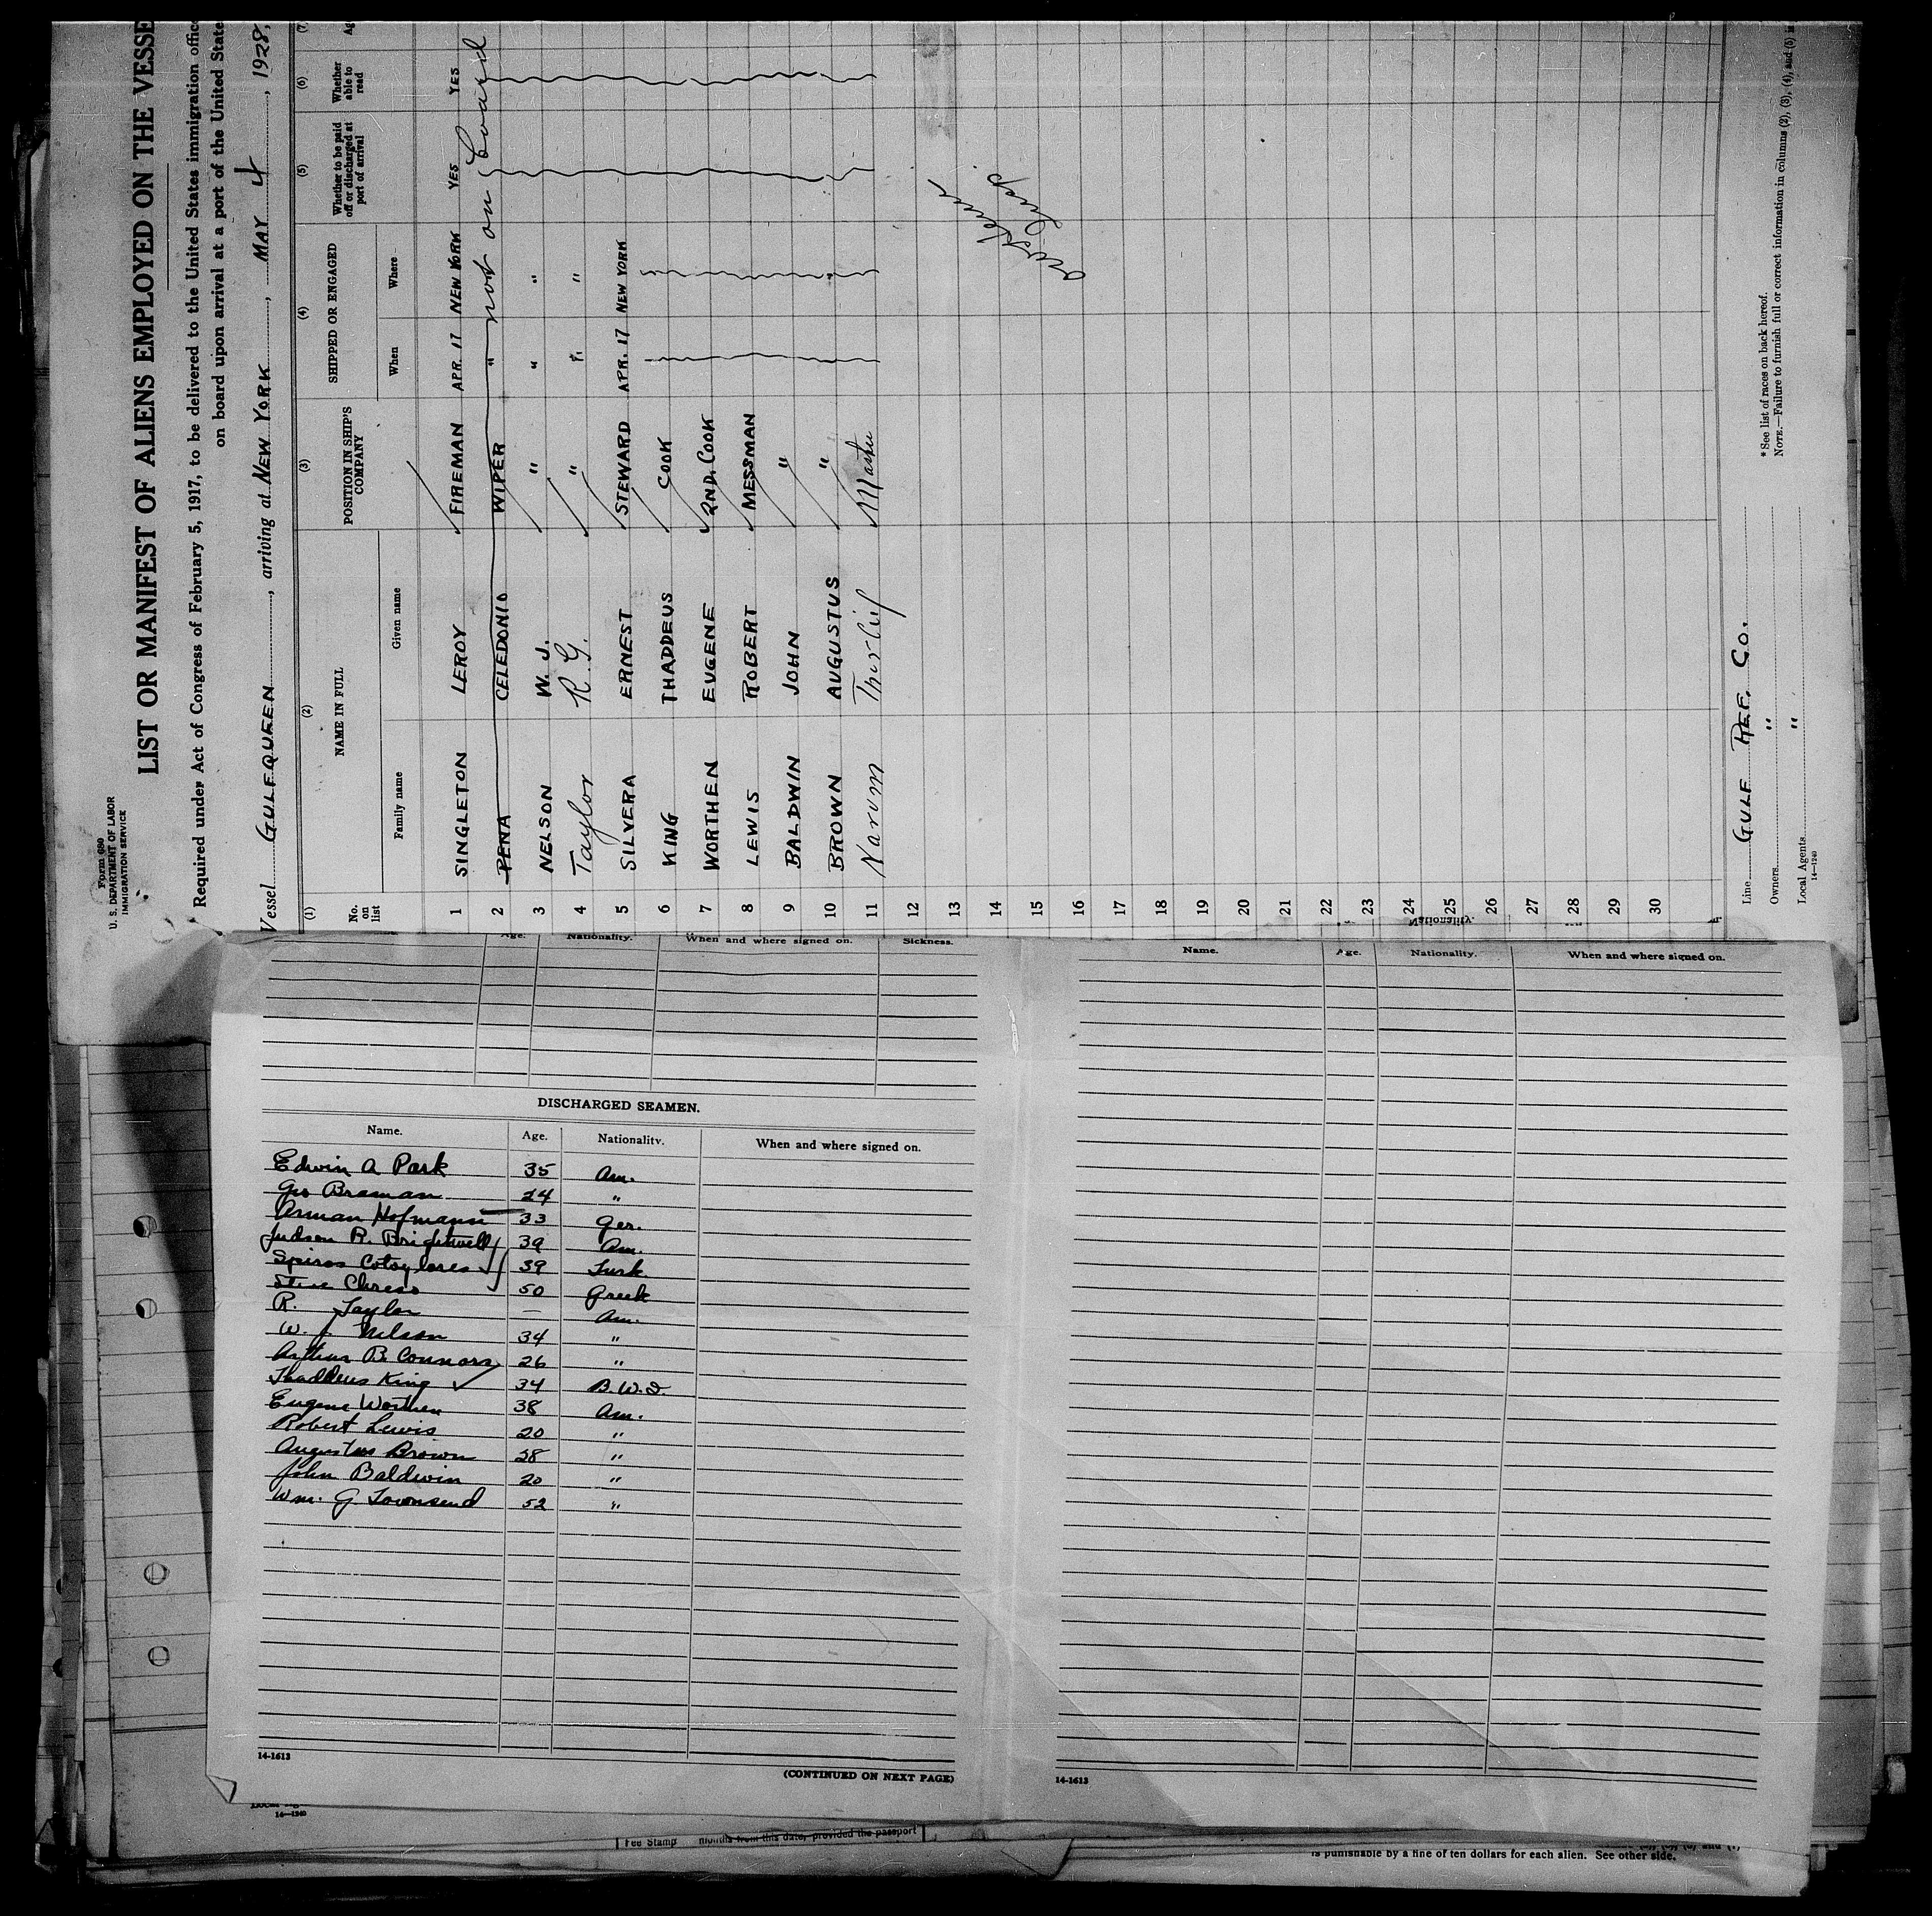 Form 680
U. S. DEPARTMENT OF LABOR
IMMIGRATION SERVICE
LIST OR MANIFEST OF ALIENS EMPLOYED ON THE VESSE
Required under Act of Congress of February 5, 1917, to be delivered to the United States immigration offic
on board upon arrival at a port of the United State
Vessel GULFQUEEN, arriving at NEW YORK, MAY 4, 1928,
(1) (2) (3) (4) (5) (6) (7)
No. on list NAME IN FULL POSITION IN SHIP'S COMPANY SHIPPED OR ENGAGED Whether to be paid off or discharged at port of arrival Whether able to read Ag
Family name Given name When Where
1 SINGLETON LEROY FIREMAN APR. 17 NEW YORK YES YES
2 PENA CELEDONIO WIPER " not on board
3 NELSON W. J. " " "
4 Taylor R. G. " " "
5 SILVERA ERNEST STEWARD APR. 17 NEW YORK
6 KING THADDEUS COOK
7 WORTHEN EUGENE 2ND. COOK
8 LEWIS ROBERT MESSMAN
9 BALDWIN JOHN "
10 BROWN AUGUSTUS " "
11 Narum Thorlief Master
12
13
14
15
16
17
18
19
20
21
22
23
24
25
26
27
28
29
30
Line GULF REF. CO.
Owners "
Local Agents "
14—1240
*See list of races on back hereof.
NOTE.—Failure to furnish full or correct information in columns (2), (3), (4), and (5) is
Nationality.
Age. Nationality. When and where signed on. Sickness.
DISCHARGED SEAMEN.
Name. Age. Nationality. When and where signed on.
Edwin A Park 35 Am.
Geo Braman 24 "
Arman Hofmann 33 Ger.
Judson R. Brightwell 39 Am.
Spiros Cotoylores 39 Turk.
Steve Chress 50 Greek
R. Taylor — Am.
W. J. Nelson 34 "
Arthur B. Connors 26 "
Thaddeus King 34 B.W.I.
Eugene Worthen 38 Am.
Robert Lewis 20 "
Augustus Brown 28 "
John Baldwin 20 "
Wm. G Townsend 52 "
14-1613
(CONTINUED ON NEXT PAGE)
Name. Age. Nationality. When and where signed on.
14-1613
14—1240
Fee Stamp months from this date, provided the passport
is punishable by a fine of ten dollars for each alien. See other side.